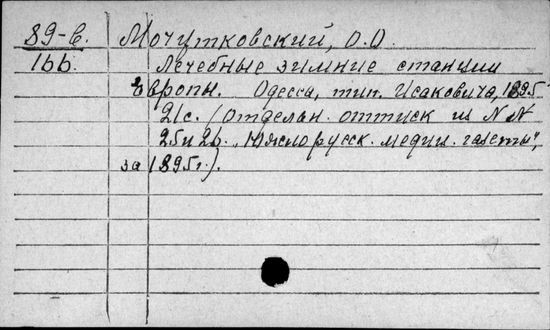 89-в. Мочутковский, О.О.
166. Лечебные зимние станции
Европы. Одесса, тип. Исаковича, 1895
21с. (Отдельн. оттиск из N N
25 и 26. „Южнорусск. медиц. газеты",
за 1895г.).